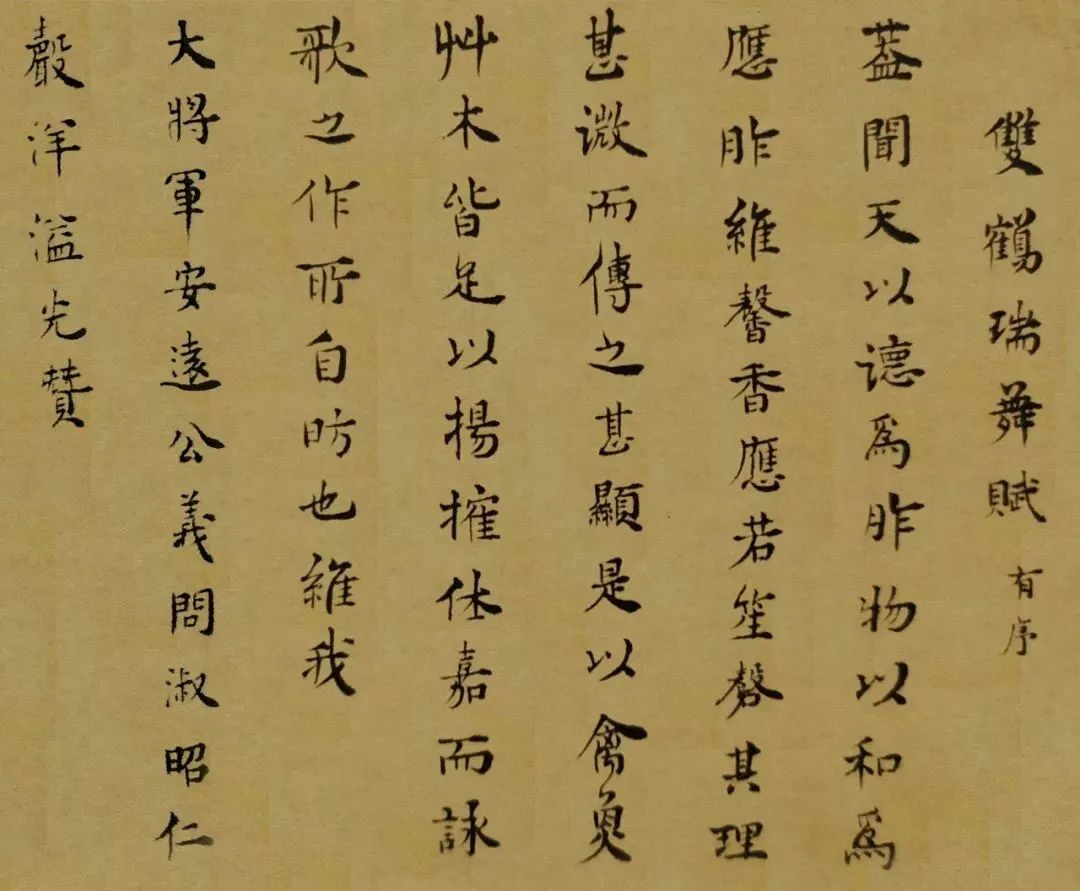 雙鶴瑞舞賦 有序
葢聞天以德爲胙物以和爲
應胙維馨香應若笙磬其理
甚微而傳之甚顯是以禽臭
艸木皆足以揚搉休嘉而詠
歌之作所自昉也維我
大將軍安遠公義問淑昭仁
聲洋溢光贊